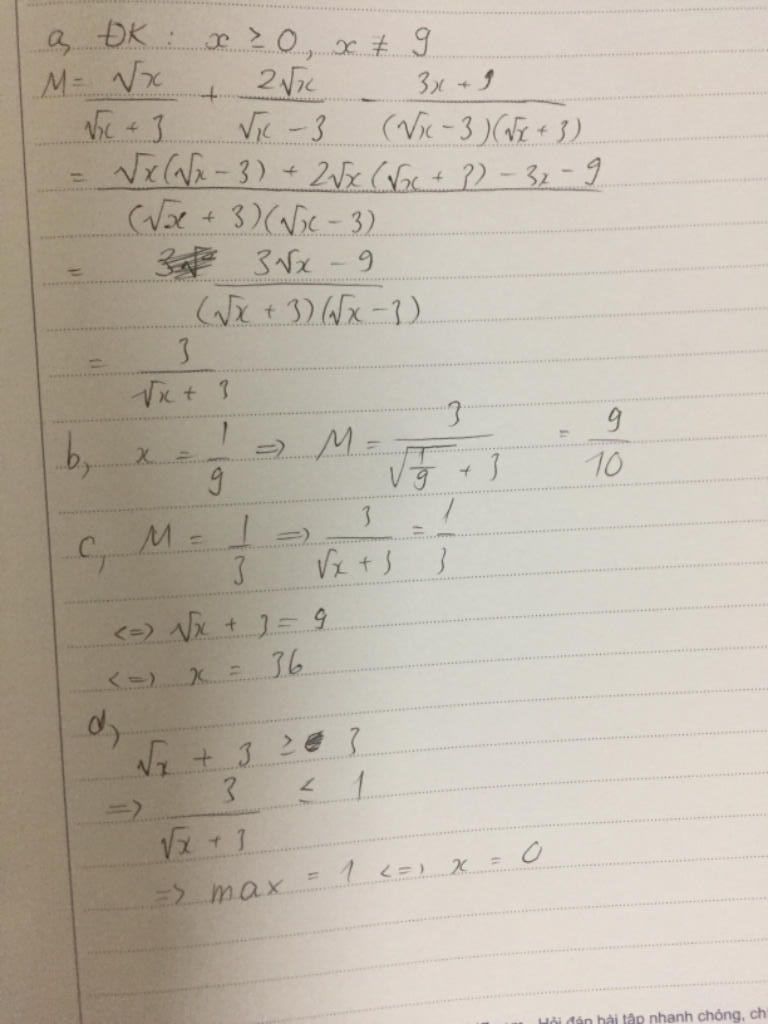 a, ĐK : x ≥ 0, x ≠ 9
M = √x / (√x + 3) + 2√x / (√x - 3) - (3x + 9) / ((√x - 3)(√x + 3))
= (√x(√x - 3) + 2√x(√x + 3) - 3x - 9) / ((√x + 3)(√x - 3))
= (3√x - 9) / ((√x + 3)(√x - 3))
= 3 / (√x + 3)
b, x = 1/9 => M = 3 / (√(1/9) + 3) = 9/10
c, M = 1/3 => 3 / (√x + 3) = 1/3
<=> √x + 3 = 9
<=> x = 36
d, √x + 3 ≥ 3
=> 3 / (√x + 3) ≤ 1
=> max = 1 <=> x = 0
Hỏi đáp bài tập nhanh chóng, ch